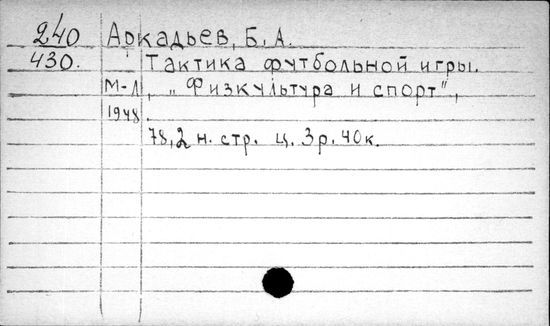 240 Аркадьев, Б. А.
430. Тактика футбольной игры.
М-Л, „Физкультура и спорт",
1948.
78,2 н. стр. ц. 3р. 40к.